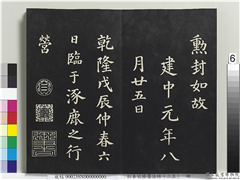 勲封如故
建中元年八
月廿五日
乾隆戊辰仲春六
日臨于涿鹿之行
營
6